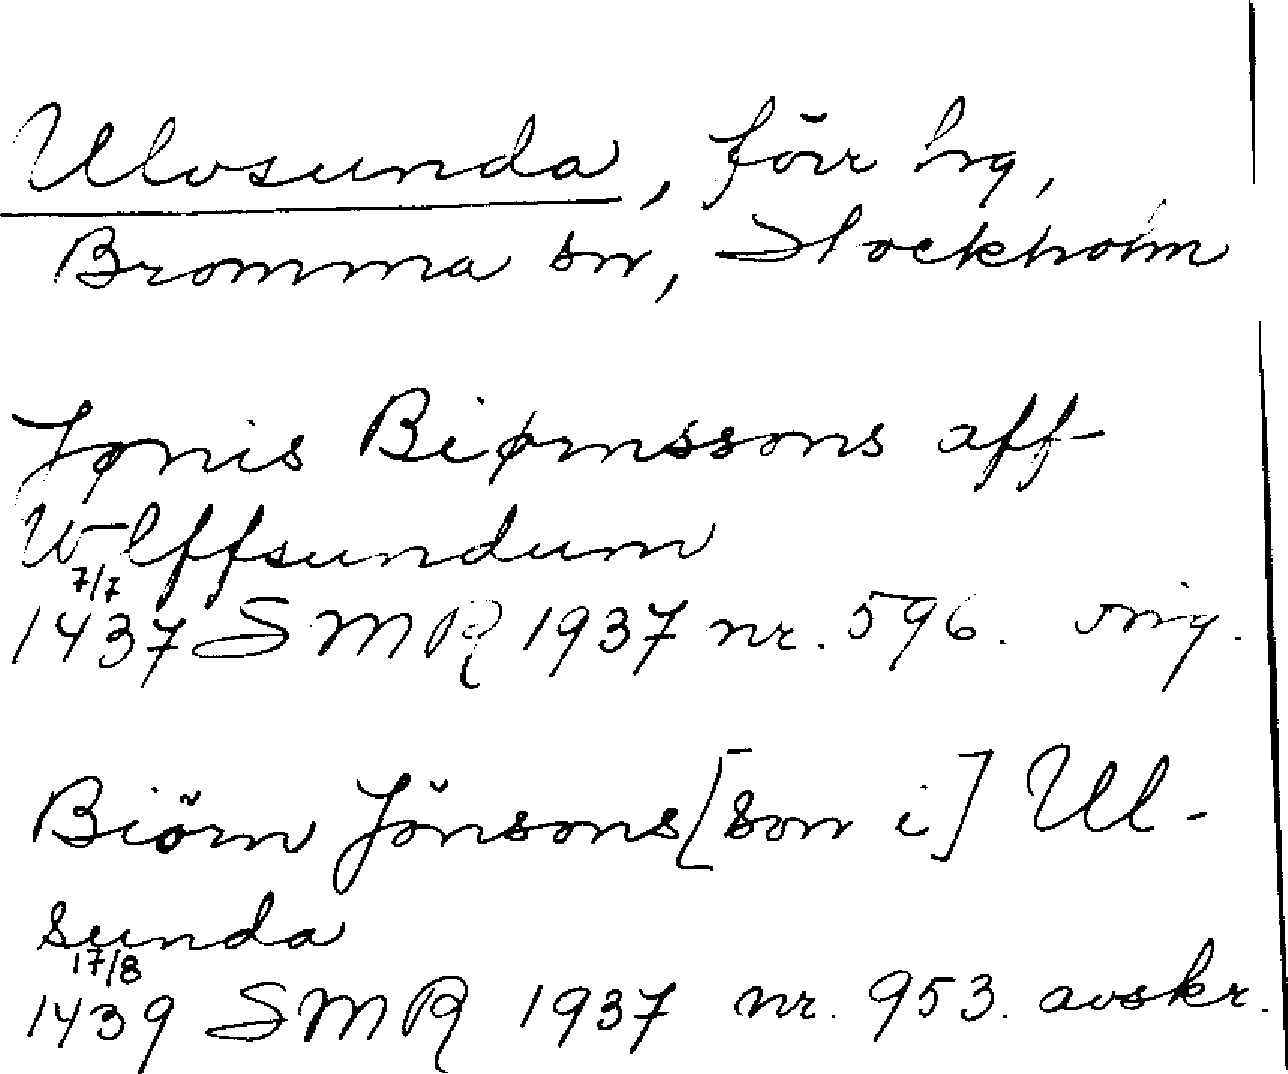 Ulvsunda, förr hg,
Bromma sn, Stockholm
Jønis Biørnssons aff
Wlffsundum
7/7
1437 SMR 1937 nr. 596. orig.
Biörn Jönsons [son i] Ul-
sunda
17/8
1439 SMR 1937 nr. 953. avskr.